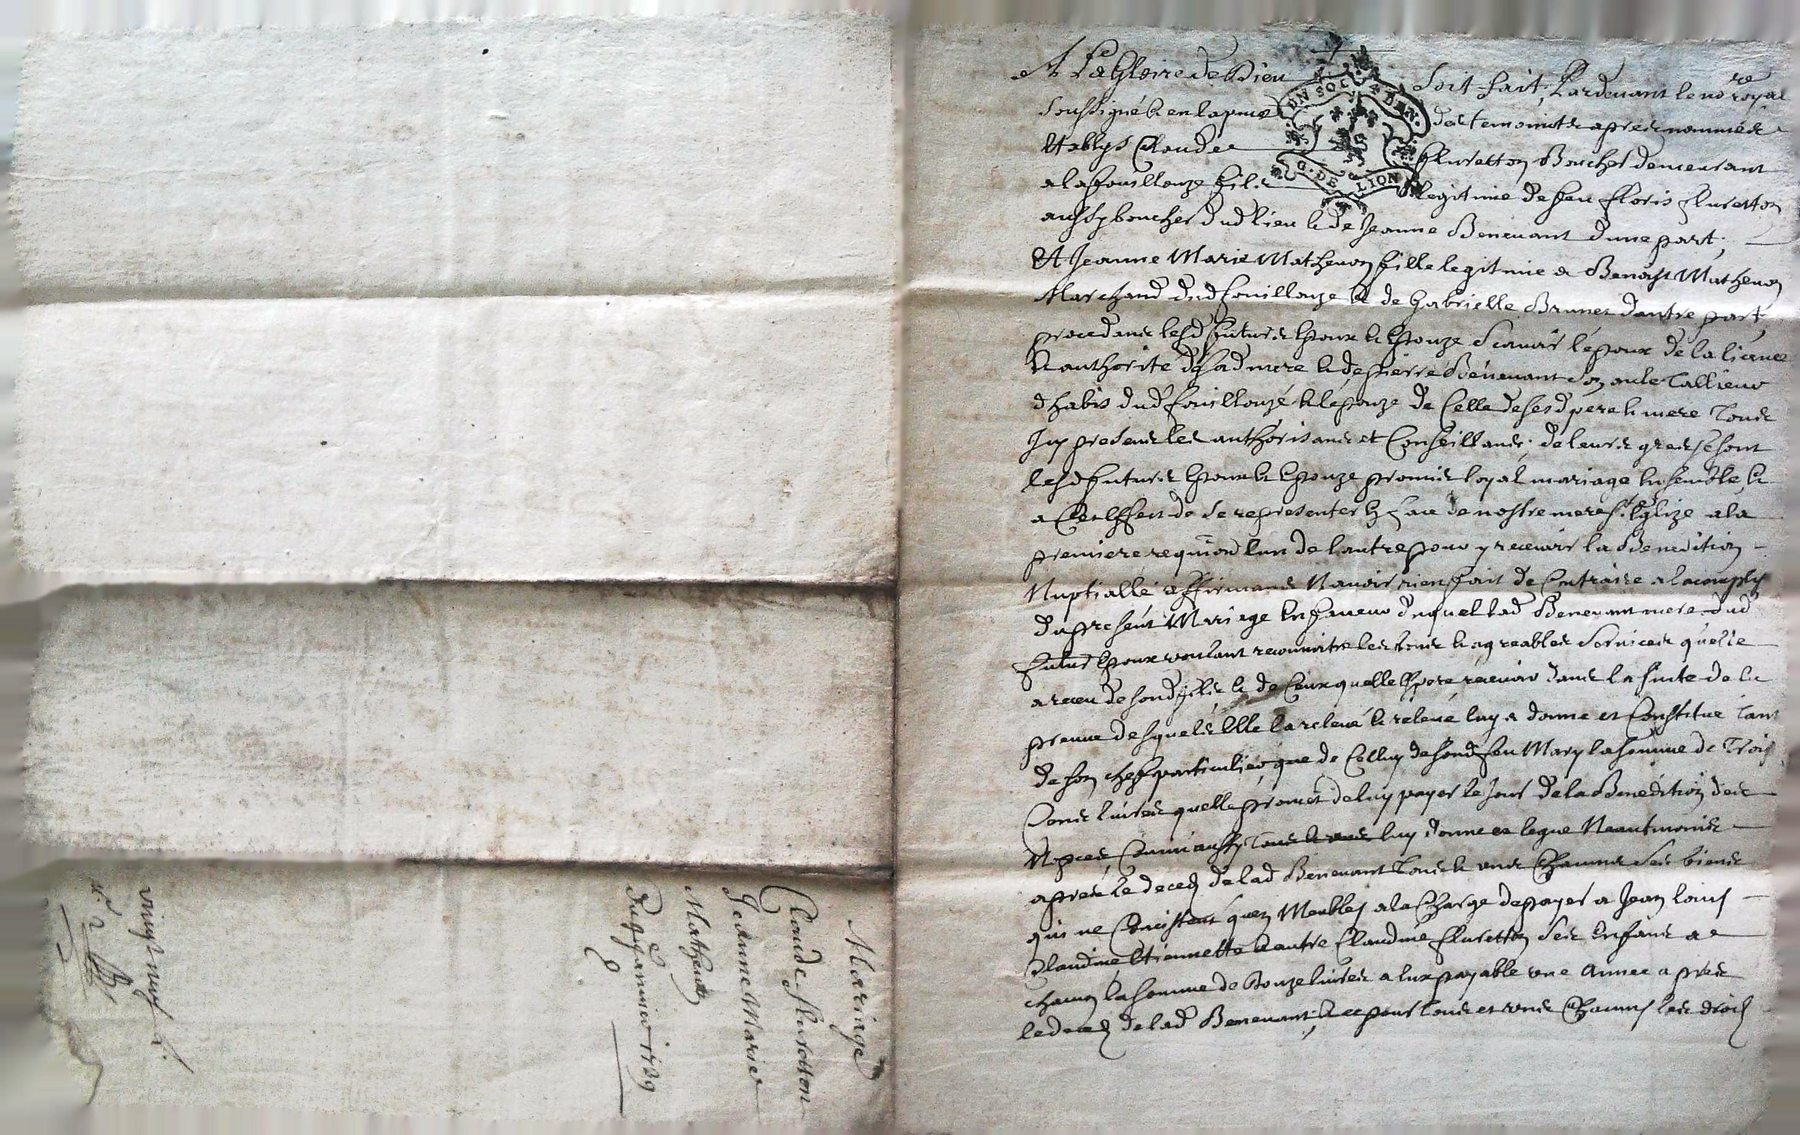 A La Gloire de Dieu soit fait, Pardevant le no.re royal
soussigné et en la pnce des temoints apres nommés
Establys Claude Fluretton Boucher demeurant
a la fouillouze fils legitime de feu Floris Fluretton
aussy boucher dud lieu et de Jeanne Benevant dune part,
Et Jeanne Marie Mathevon fille legitime a Benoist Mathevon
Marchand dud fouillouze et de Gabrielle Brunet dautre part,
procedants lesd futurs Epoux et Epouze scavoir l'epoux de la licence
et authorité de sad mere et de pierre Benevant son oncle Tallieur
dhabits dud fouillouze et lepouze de Celle de sesd pere et mere Tous
Icy presents les authorisants et Conseillants, de leurs grees se sont
lesd futurs Epoux et Epouze promis loyal mariage Ensemble, et
a Cet Effect de se representer En face de nostre mere Ste Eglize a la
premiere requion lun de lautre pour y recevoir la Benediction
Nuptialle affirmants Navoir rien fait de Contraire a lacomply
du present Mariage En faveur duquel lad Benevant mere dud
futur Epoux voulant reconnoitre les bons et agreables services quelle
a receu de sond fils et de Ceux quelle Espere recevoir dans la suite de la
preuve desquels Elle la relevé et releve luy a donne et Constitue Tant
de son chef particulier que de Celluy de sond feu Mary la somme de Trois
Cents livres quelle promet de luy payer le Jour de la Benediction des
Nopces Comm'aussy luy donne et legue Neantmoins
apres le deced de lad Benevant Tous et uns Chacuns ses biens
qui ne Consistent quen Meubles a la Charge de payer a Jean louis
Claudine Etiennette et autre Claudine Fluretton ses Enfants a
chacun la somme de Douze livres a Eux payable une Annee apres
le deced de lad Benevant, Et ce pour Tous et uns Chacuns les droits
EN SOL
4 DEN.
G. DE LION
Mariage
Claude Fluretton
Jeanne Marie
Mathevon
Du 9e Janvier 1729
vingt neuf L.